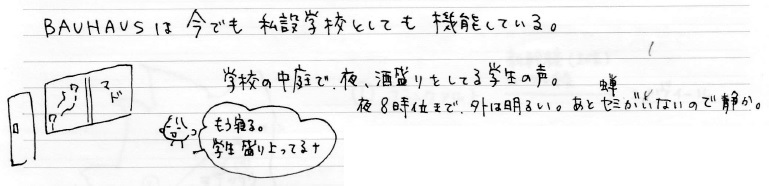 BAUHAUSは今でも私設学校としても機能している。
学校の中庭で、夜、酒盛りをしてる学生の声。
蝉
夜8時位まで、外は明るい。あとセミがいないので静か。
マド
もう寝る。
学生盛り上ってるナ